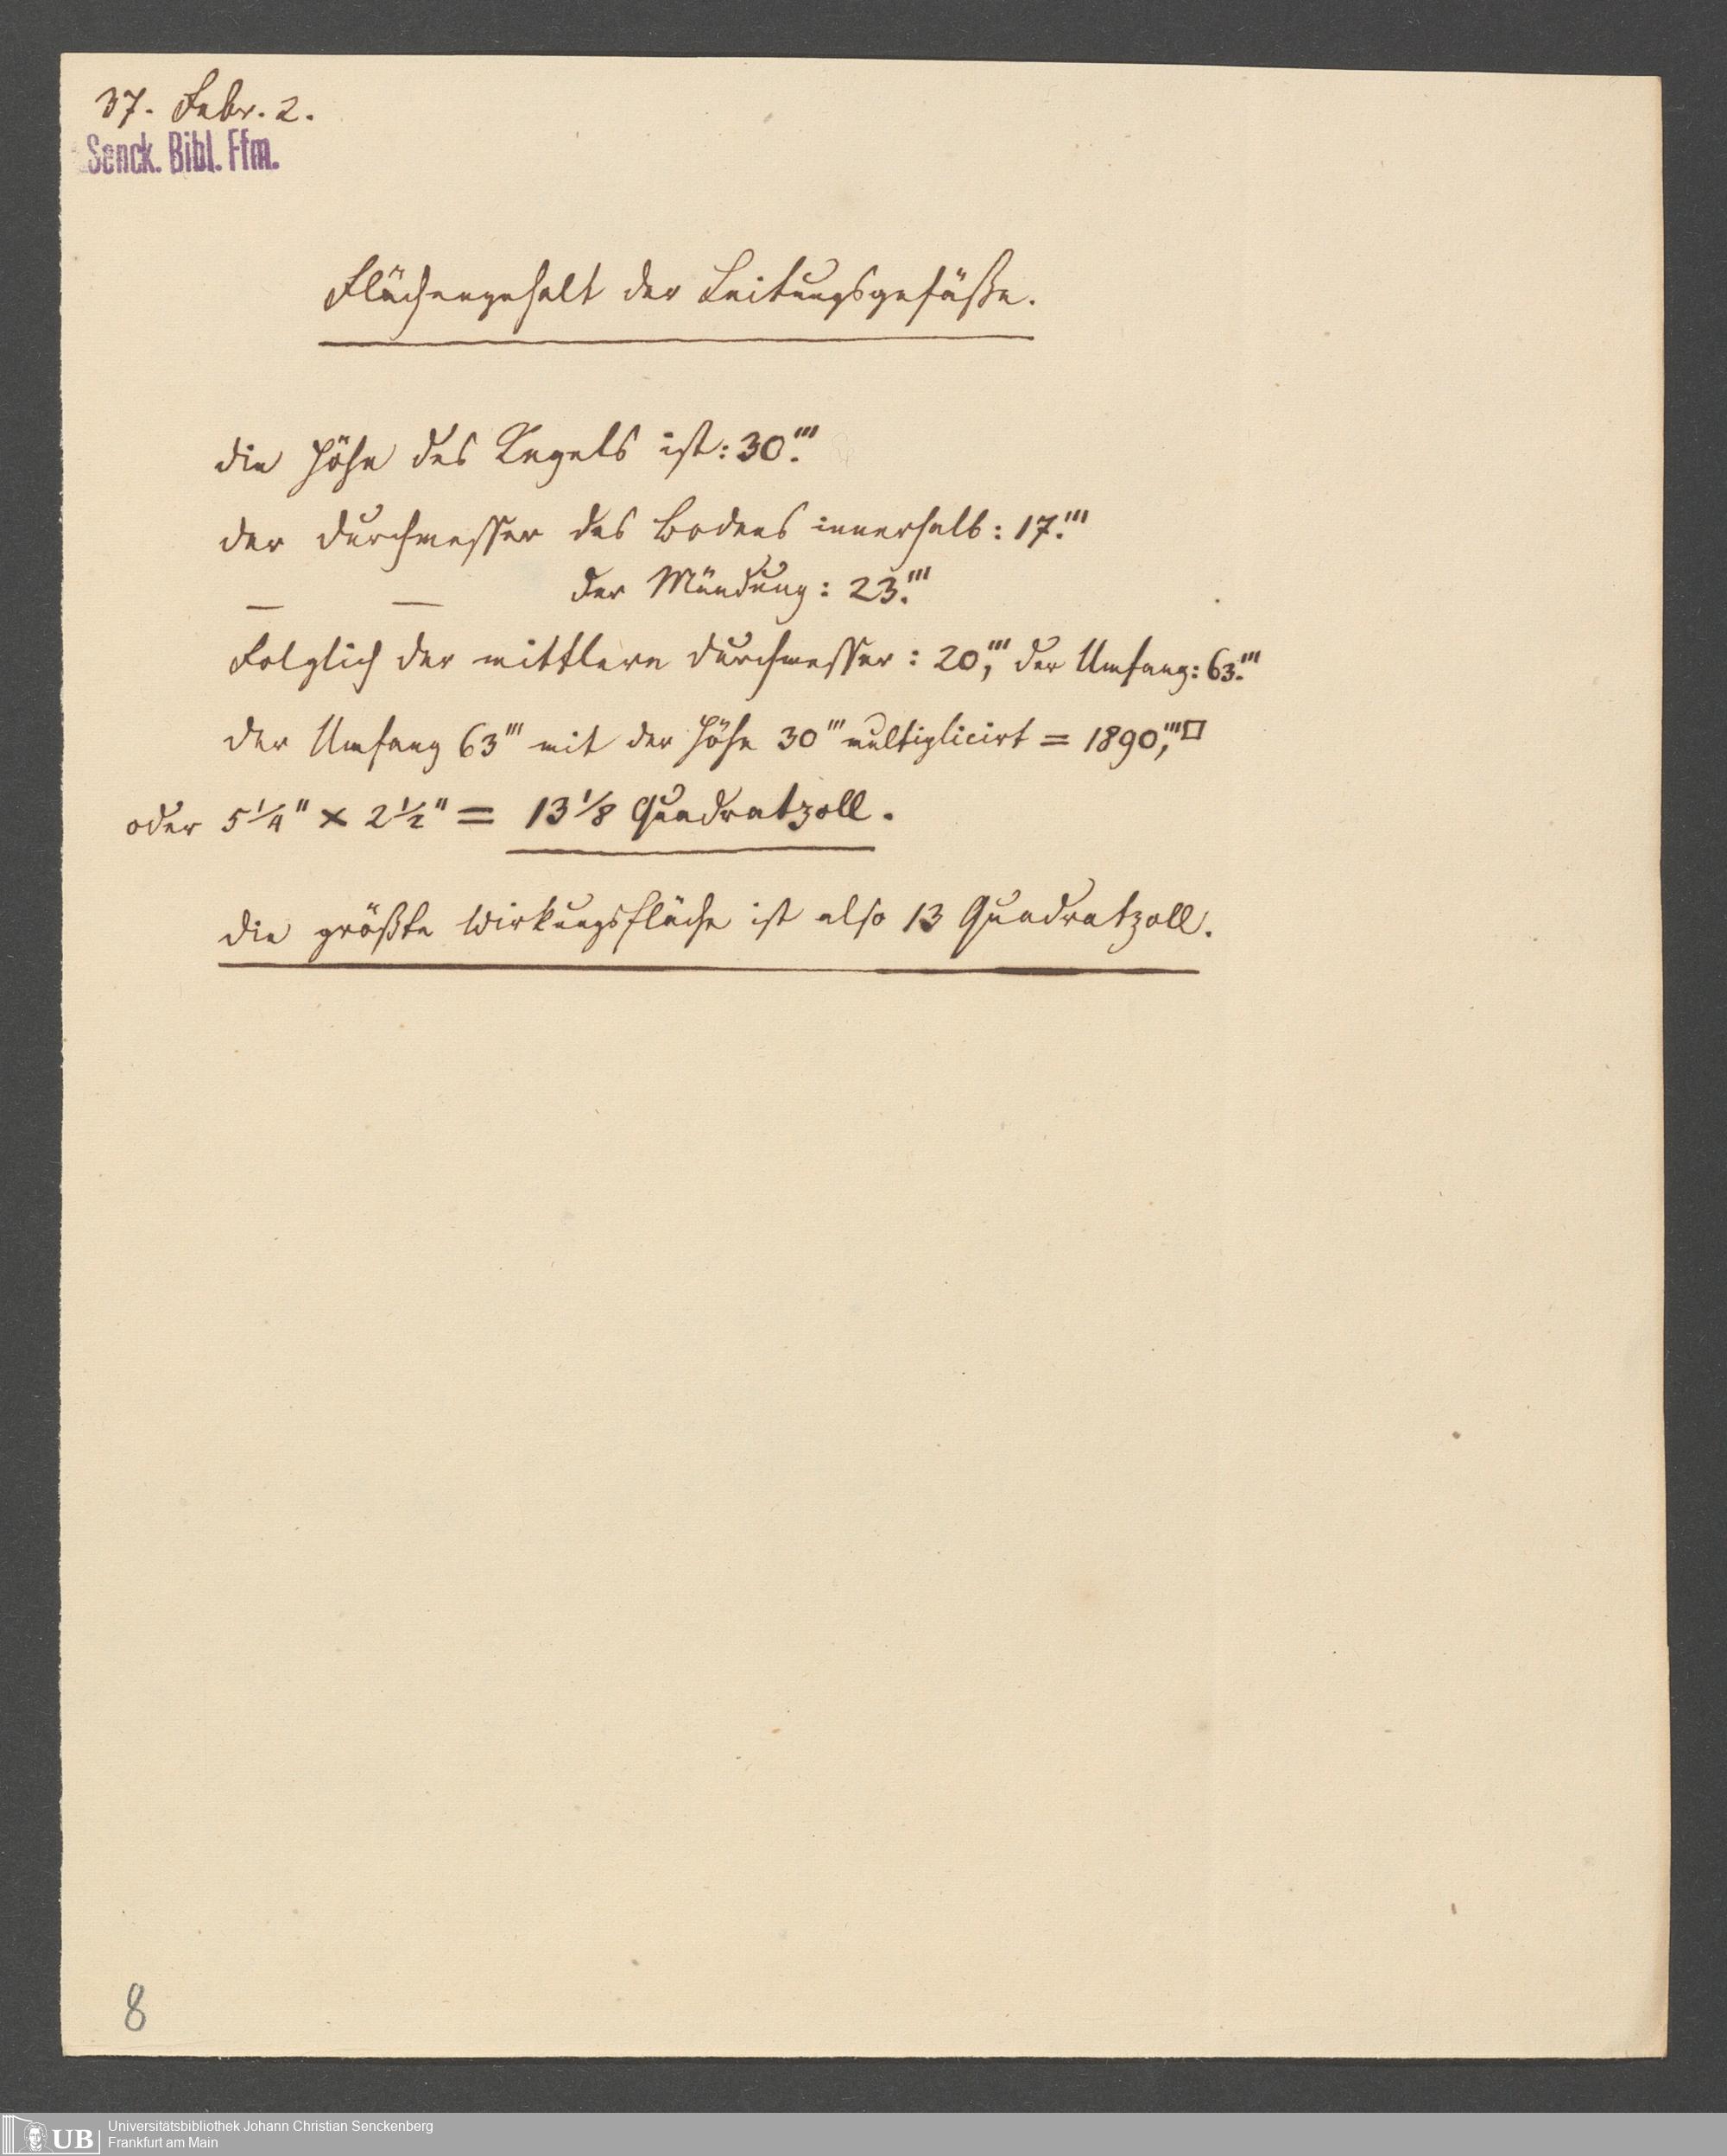 37. Febr. 2.
Senck. Bibl. Ffm.
Flächengehalt der Leitungsgefäße.
die Höhe des Kegels ist: 30.'''
der Durchmesser des Bodens innerhalb: 17.'''
— — der Mündung: 23.'''
Folglich der mittlere Durchmesser: 20,''' der Umfang: 63.'''
der Umfang 63''' mit der Höhe 30''' multiplicirt = 1890,'''□
oder 5 1/4" × 2 1/2" = 13 1/8 Quadratzoll.
die größte Wirkungsfläche ist also 13 Quadratzoll.
8
UB
Universitätsbibliothek Johann Christian Senckenberg
Frankfurt am Main